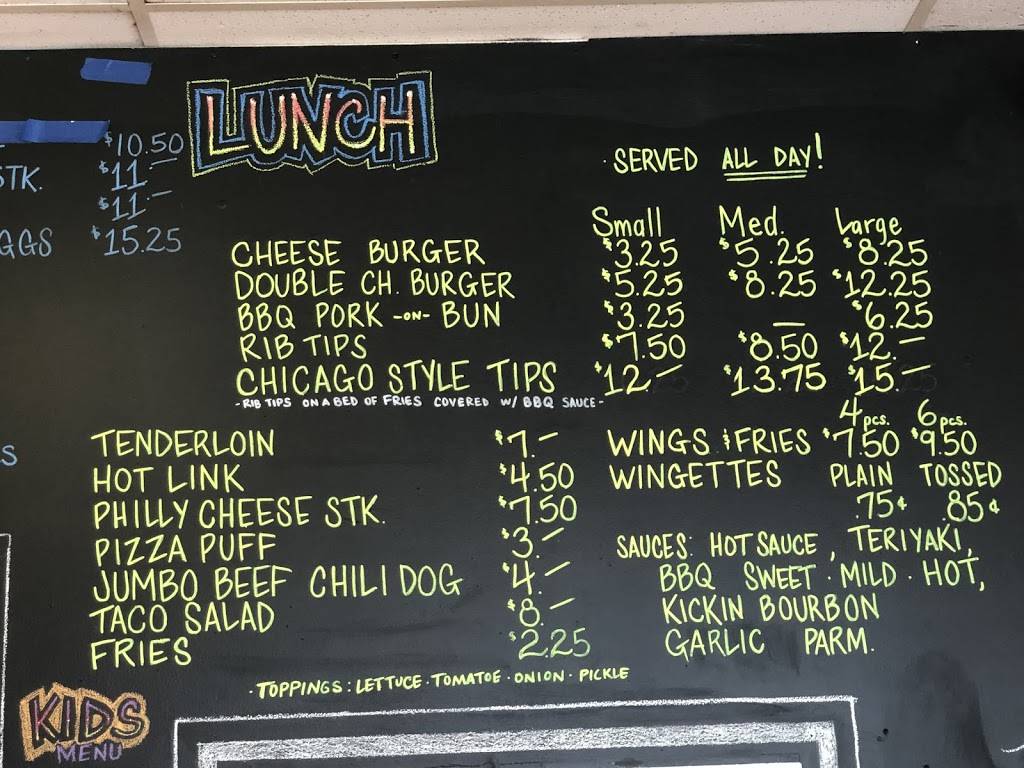 LUNCH
· SERVED ALL DAY!
$10.50
STK. $11.—
$11.—
GGS $15.25
Small Med. Large
CHEESE BURGER $3.25 $5.25 $8.25
DOUBLE CH. BURGER $5.25 $8.25 $12.25
BBQ PORK -ON- BUN $3.25 — $6.25
RIB TIPS $7.50 $8.50 $12.—
CHICAGO STYLE TIPS $12.— $13.75 $15.—
- RIB TIPS ON A BED OF FRIES COVERED W/ BBQ SAUCE -
TENDERLOIN $7.—
HOT LINK $4.50
PHILLY CHEESE STK. $7.50
PIZZA PUFF $3.—
JUMBO BEEF CHILI DOG $4.—
TACO SALAD $8.—
FRIES $2.25
· TOPPINGS: LETTUCE · TOMATOE · ONION · PICKLE
4 pcs. 6 pcs.
WINGS & FRIES $7.50 $9.50
WINGETTES PLAIN TOSSED
.75¢ .85¢
SAUCES: HOT SAUCE, TERIYAKI,
BBQ SWEET · MILD · HOT,
KICKIN BOURBON
GARLIC PARM.
S
KIDS
MENU